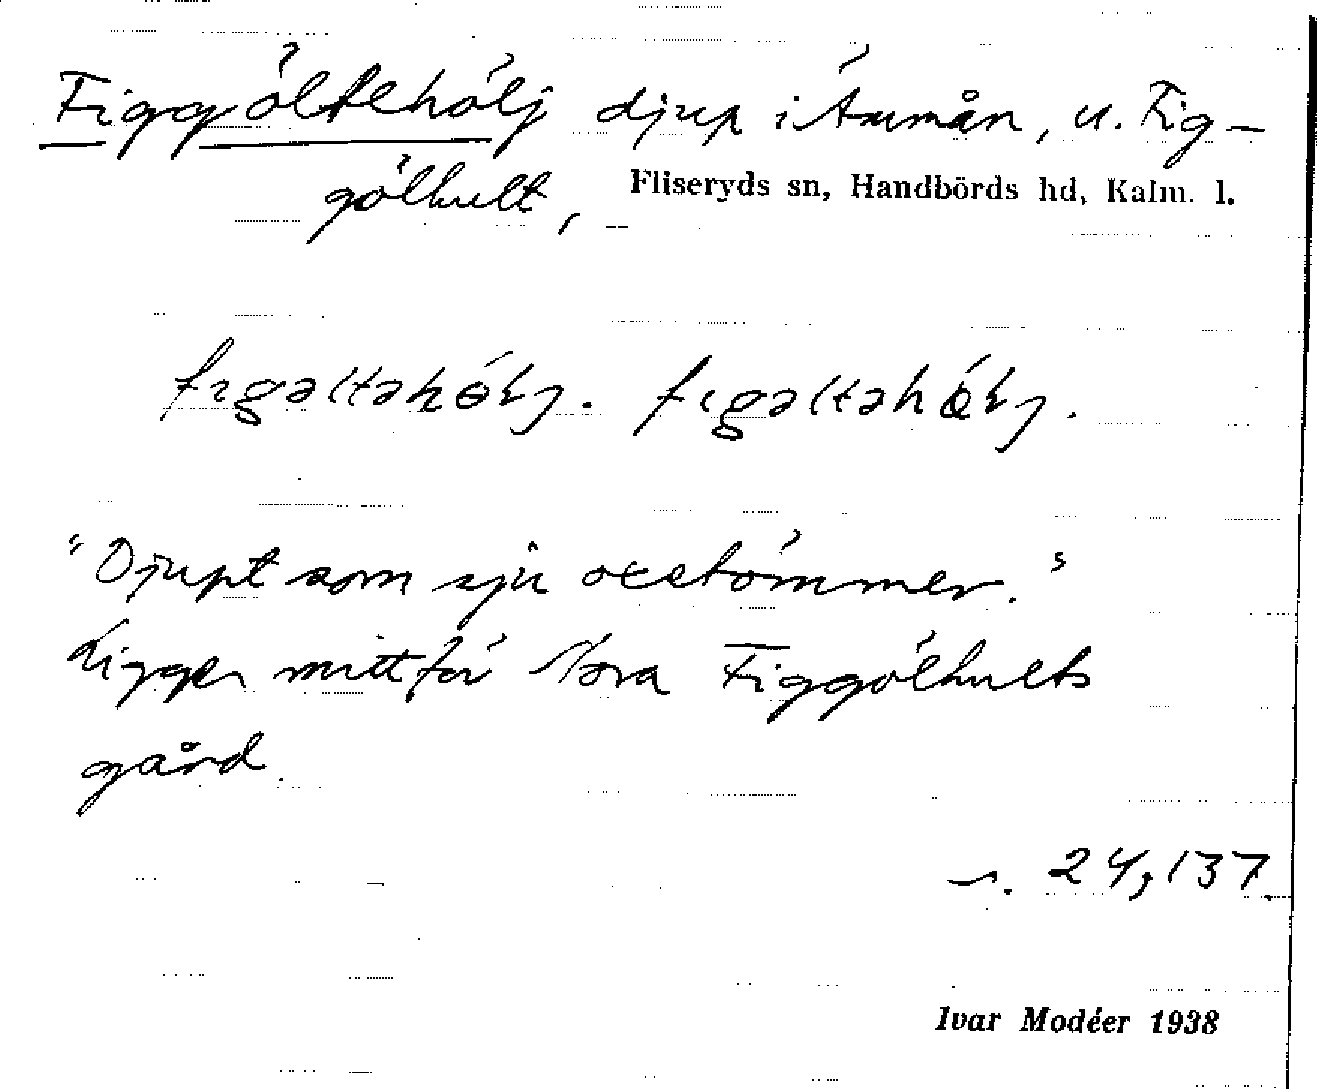 Figgöltehölj djup i Åmmån, u. Fig-
gölhult, Fliseryds sn, Handbörds hd, Kalm. l.
fıgəltəhölj. fıgəltəhœ́lj.
"Djupt som sju oxetömmer."
Ligger mitt för Norra Figgölhults
gård.
24,137
Ivar Modéer 1938